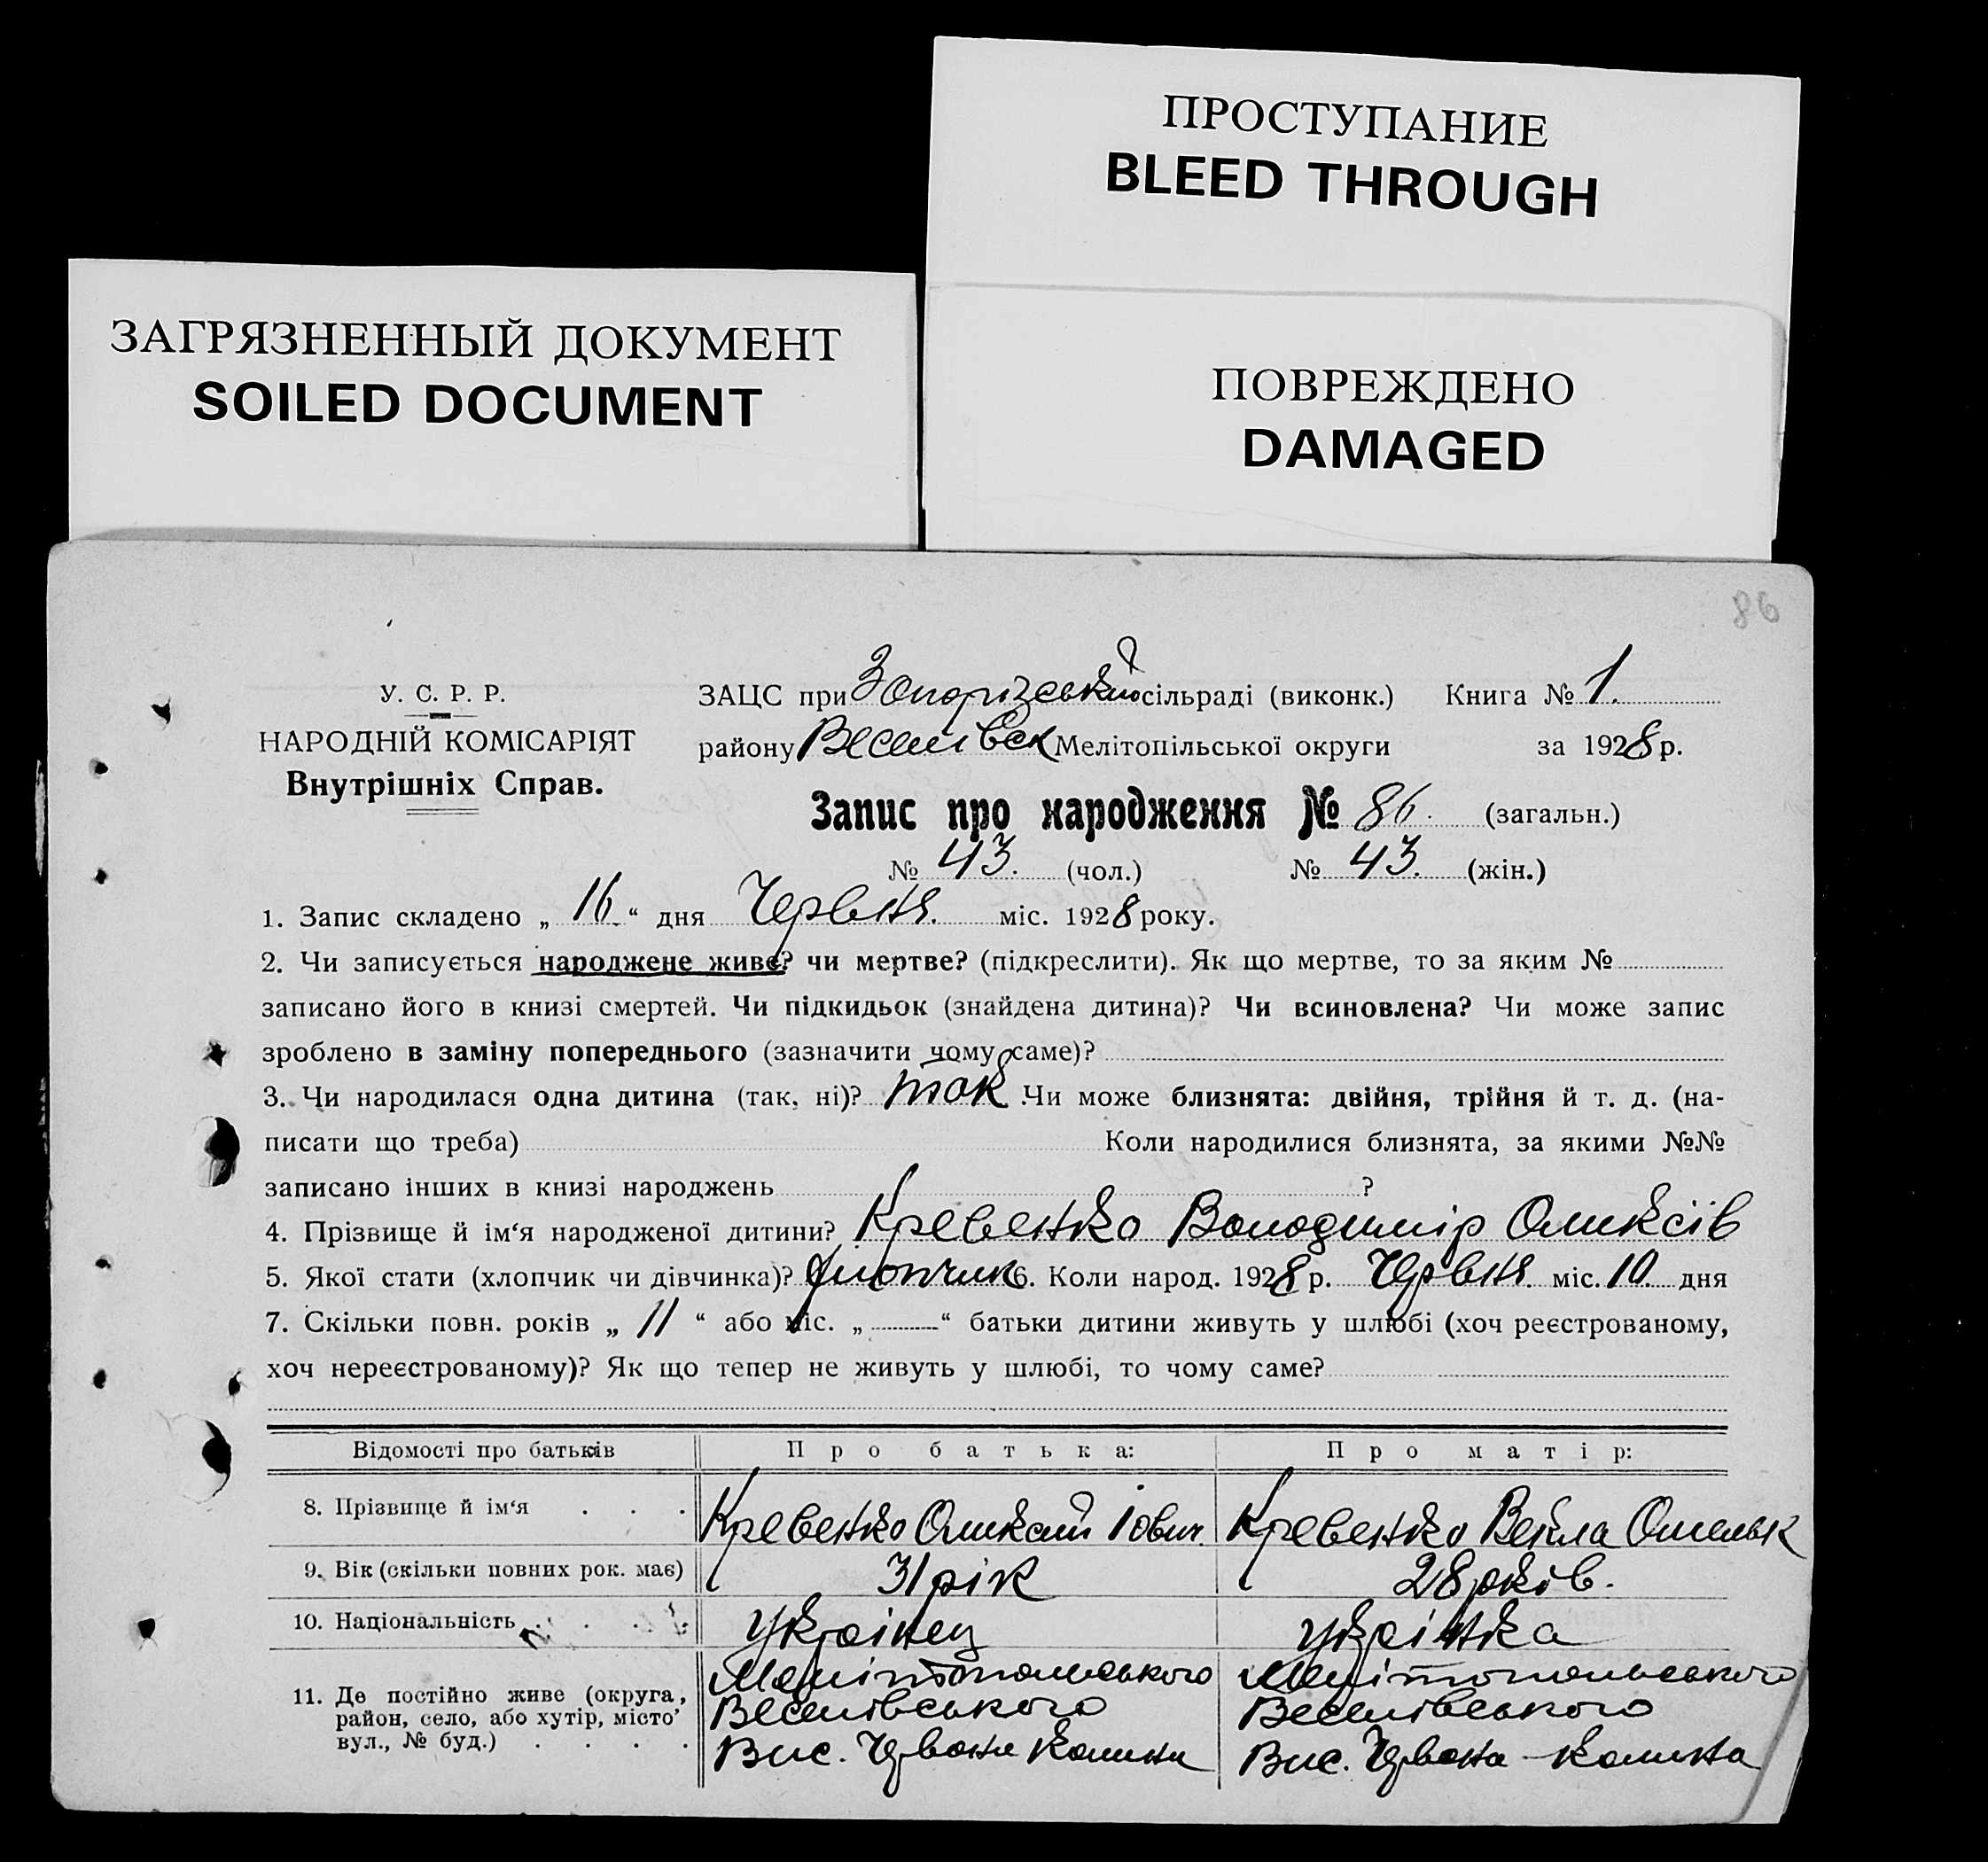 ПРОСТУПАНИЕ
BLEED THROUGH
ЗАГРЯЗНЕННЫЙ ДОКУМЕНТ
SOILED DOCUMENT
ПОВРЕЖДЕНО
DAMAGED
86
У. С. Р. Р.
НАРОДНІЙ КОМІСАРІЯТ
Внутрішніх Справ.
ЗАЦС при Запорізській сільраді (виконк.) Книга № 1.
району Веселівск Мелітопільської округи за 1928 р.
Запис про народження № 86. (загальн.)
№ 43. (чол.) № 43. (жін.)
1. Запис складено „ 16 “ дня Червня. міс. 1928 року.
2. Чи записується народжене живе? чи мертве? (підкреслити). Як що мертве, то за яким №
записано його в книзі смертей. Чи підкидьок (знайдена дитина)? Чи всиновлена? Чи може запис
зроблено в заміну попереднього (зазначити чому саме)?
3. Чи народилася одна дитина (так, ні)? так Чи може близнята: двійня, трійня й т. д. (на-
писати що треба) Коли народилися близнята, за якими №№
записано інших в книзі народжень ?
4. Прізвище й ім‘я народженої дитини? Кревенко Володимір Олексїїв
5. Якої стати (хлопчик чи дівчинка)? Хлопчик 6. Коли народ. 1928 р. Червня міс. 10 дня
7. Скільки повн. років „ 11 “ або міс. „ — “ батьки дитини живуть у шлюбі (хоч реєстрованому,
хоч нереєстрованому)? Як що тепер не живуть у шлюбі, то чому саме?
Відомості про батьків Про батька: Про матір:
8. Прізвище й ім‘я . . . Кревенко Олексій Іович. Кревенко Векла Омельк
9. Вік (скільки повних рок. має) 31 рік 28 років.
10. Національність . . . . українец українка
11. Де постійно живе (округа, Мелітопольського Мелітопольського
район, село, або хутір, місто’ Веселівського Веселівського
вул., № буд.) . . . . Вис. Червона Калина Вис. Червона-Калина